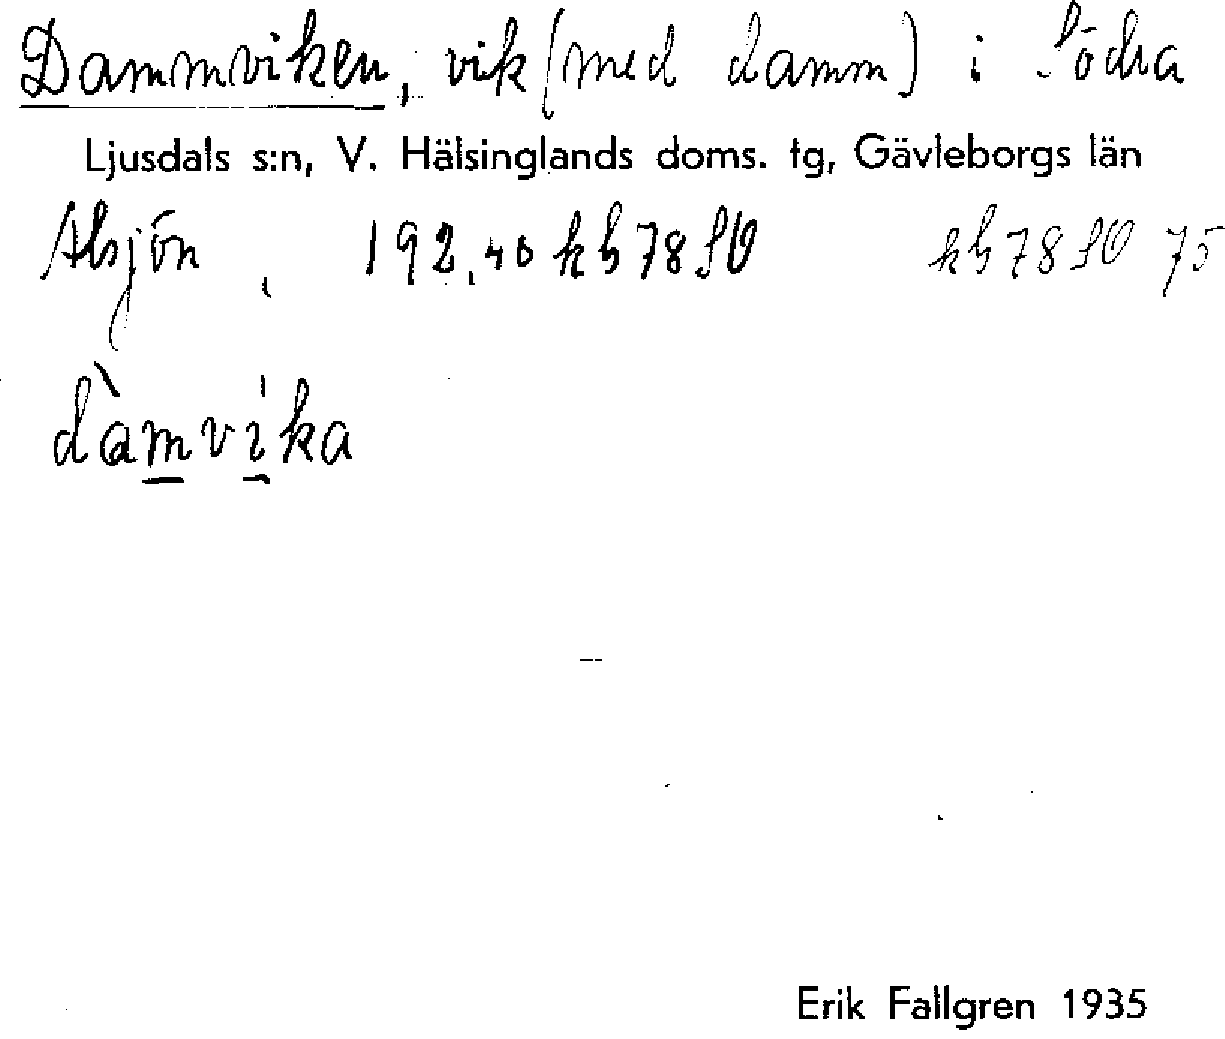 Dammviken, vik (med damm) i Södra
Ljusdals s:n, V. Hälsinglands doms. tg, Gävleborgs län
Alsjön, 192.40 kb 78 SV kb 78 SO 75
dàmvika
Erik Fallgren 1935